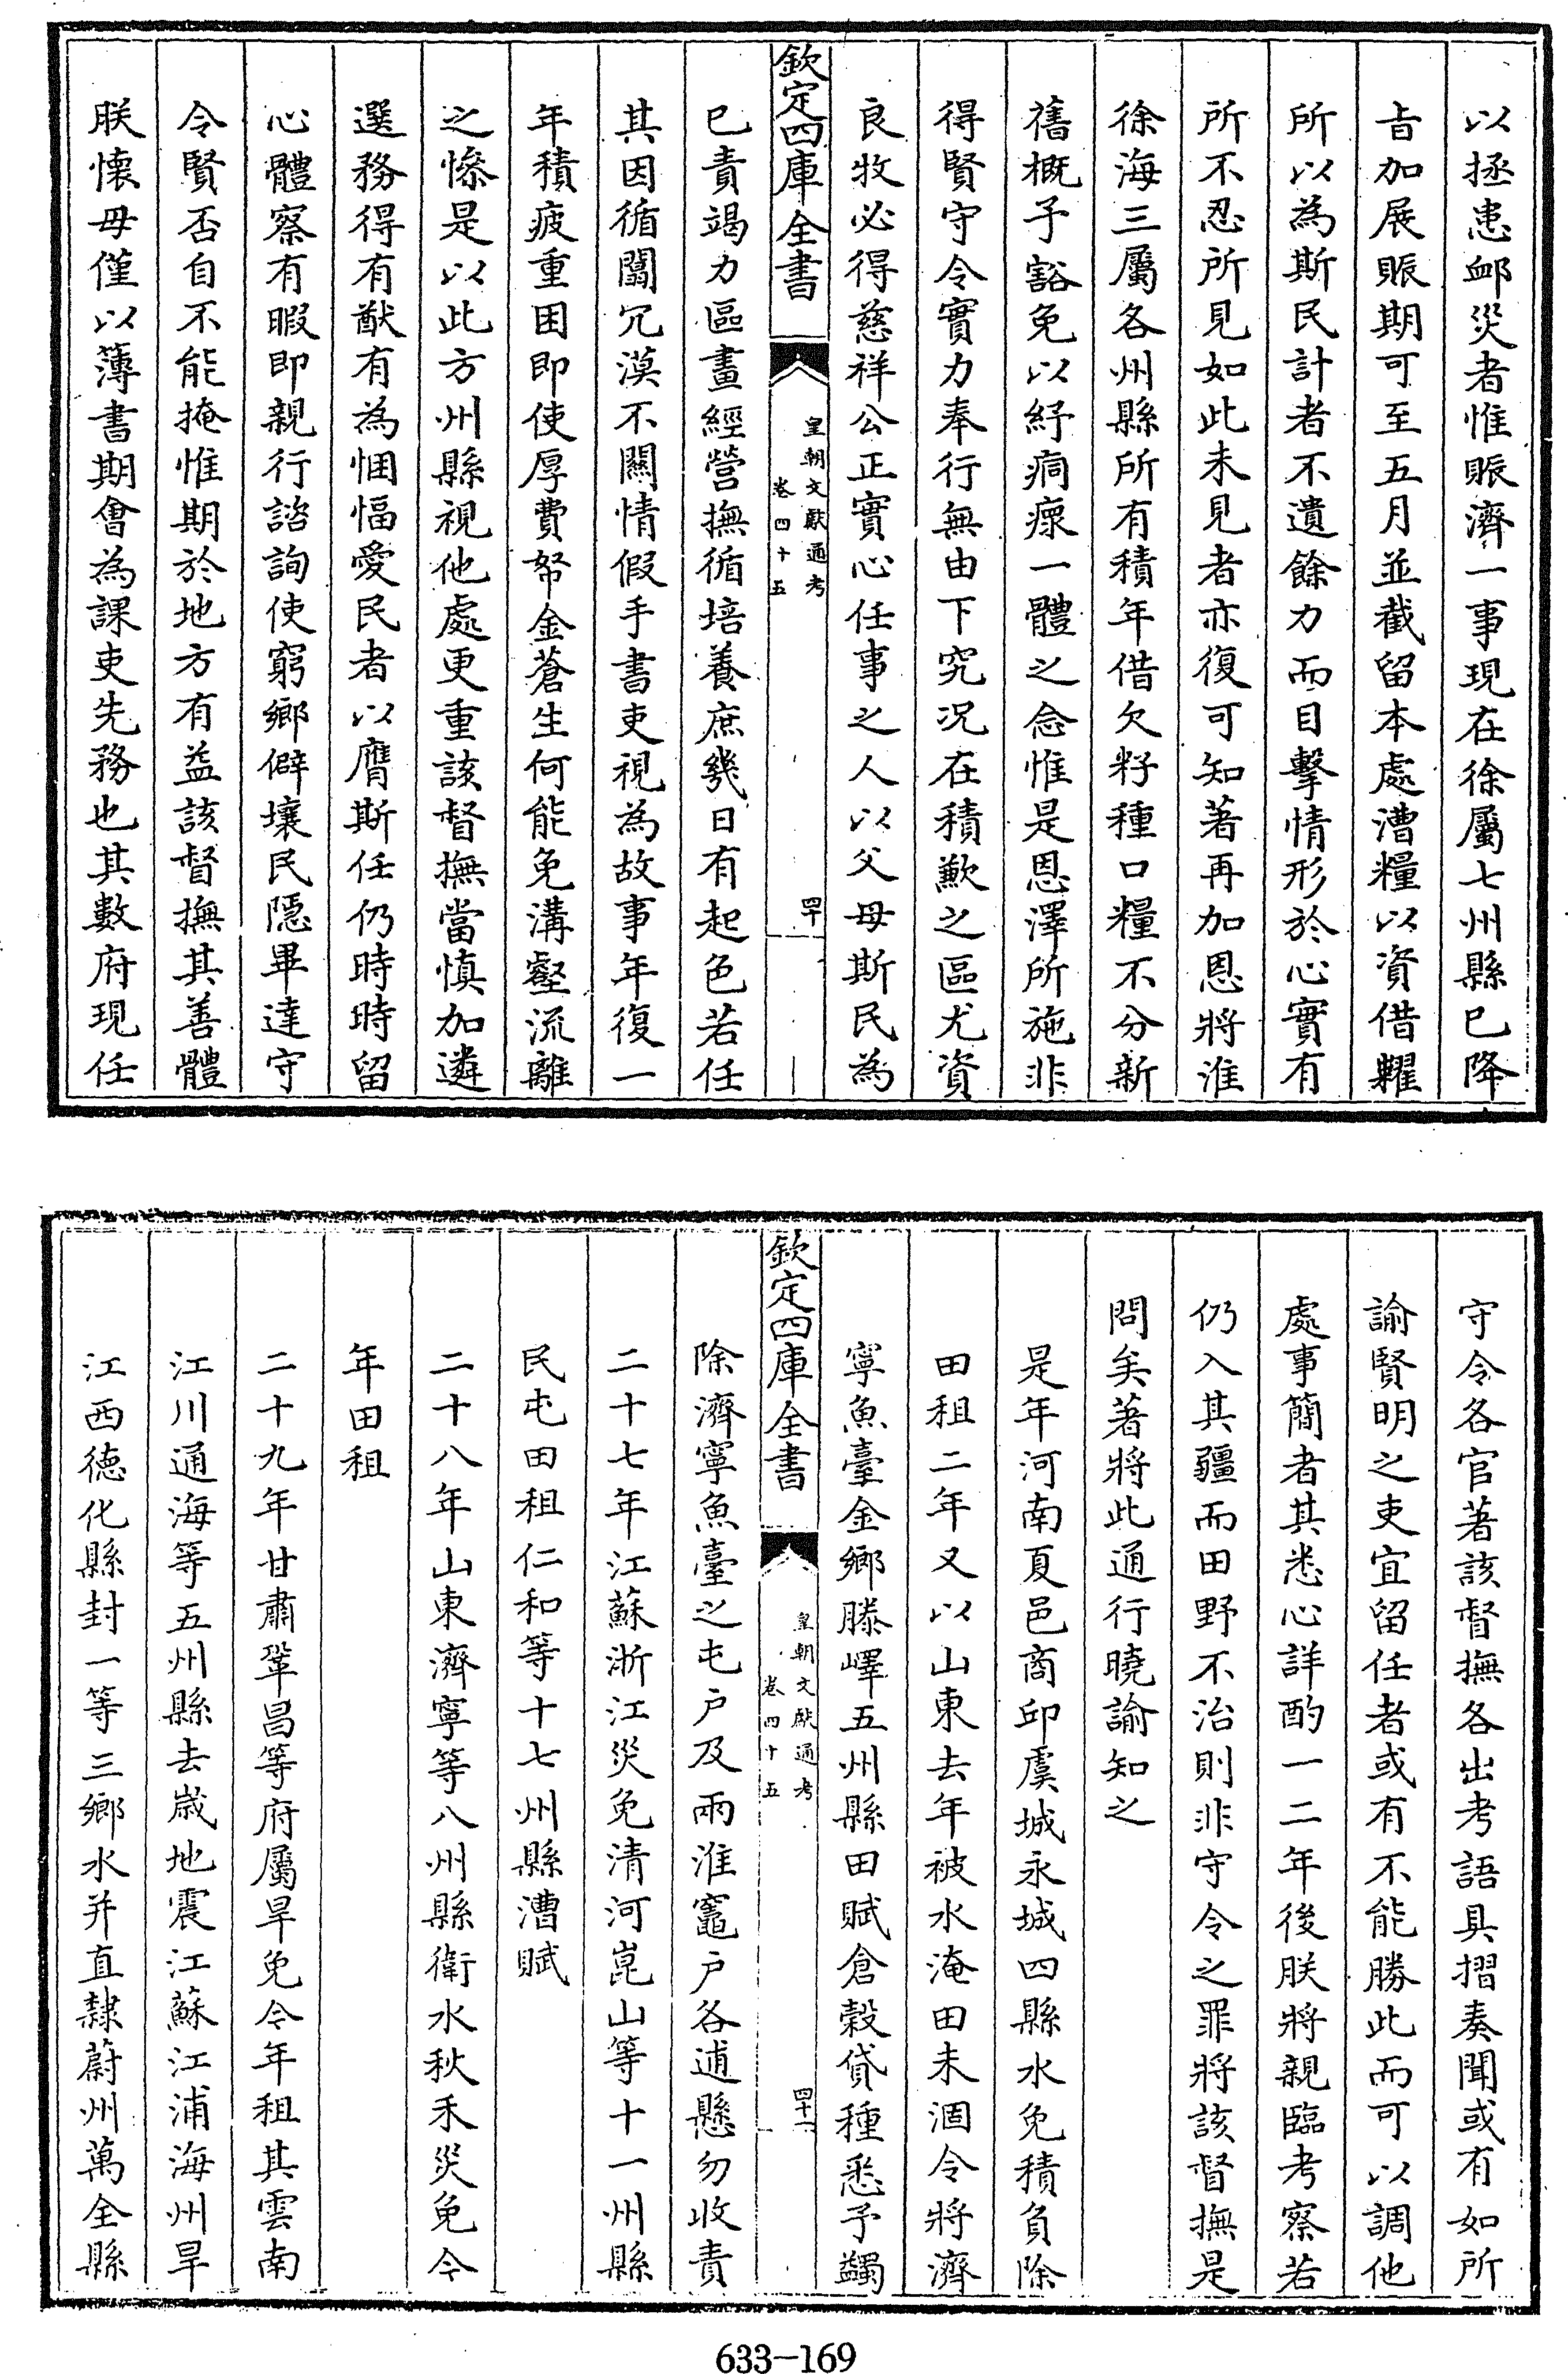 以拯患䘏災者惟賑濟一事現在徐屬七州縣已降
旨加展賑期可至五月並截留本處漕糧以資借糶
所以為斯民計者不遺餘力而目擊情形於心實有
所不忍所見如此未見者亦復可知著再加恩將淮
徐海三屬各州縣所有積年借欠籽種口糧不分新
舊概予豁免以紓痌瘝一體之念惟是恩澤所施非
得賢守令實力奉行無由下究況在積歉之區尤資
良牧必得慈祥公正實心任事之人以父母斯民為
欽定四庫全書
皇朝文獻通考
卷四十五
四十
已責竭力區畫經營撫循培養庶幾日有起色若任
其因循闒冗漠不關情假手書吏視為故事年復一
年積疲重困即使厚費帑金蒼生何能免溝壑流離
之慘是以此方州縣視他處更重該督撫當慎加遴
選務得有猷有為悃愊愛民者以膺斯任仍時時留
心體察有暇即親行諮詢使窮鄉僻壤民隱畢達守
令賢否自不能掩惟期於地方有益該督撫其善體
朕懷毋僅以簿書期會為課吏先務也其數府現任
守令各官著該督撫各出考語具摺奏聞或有如所
諭賢明之吏宜留任者或有不能勝此而可以調他
處事簡者其悉心詳酌一二年後朕將親臨考察若
仍入其疆而田野不治則非守令之罪將該督撫是
問矣著將此通行曉諭知之
是年河南夏邑商邱虞城永城四縣水免積負除
田租二年又以山東去年被水淹田未涸令將濟
寧魚臺金鄉滕嶧五州縣田賦倉榖貸種悉予蠲
欽定四庫全書
皇朝文獻通考
卷四十五
四十一
除濟寧魚臺之屯户及兩淮竈户各逋懸勿收責
二十七年江蘇浙江災免清河崑山等十一州縣
民屯田租仁和等十七州縣漕賦
二十八年山東濟寧等八州縣衛水秋禾災免今
年田租
二十九年甘肅鞏昌等府屬旱免今年租其雲南
江川通海等五州縣去歲地震江蘇江浦海州旱
江西德化縣封一等三鄉水并直隸蔚州萬全縣
633-169